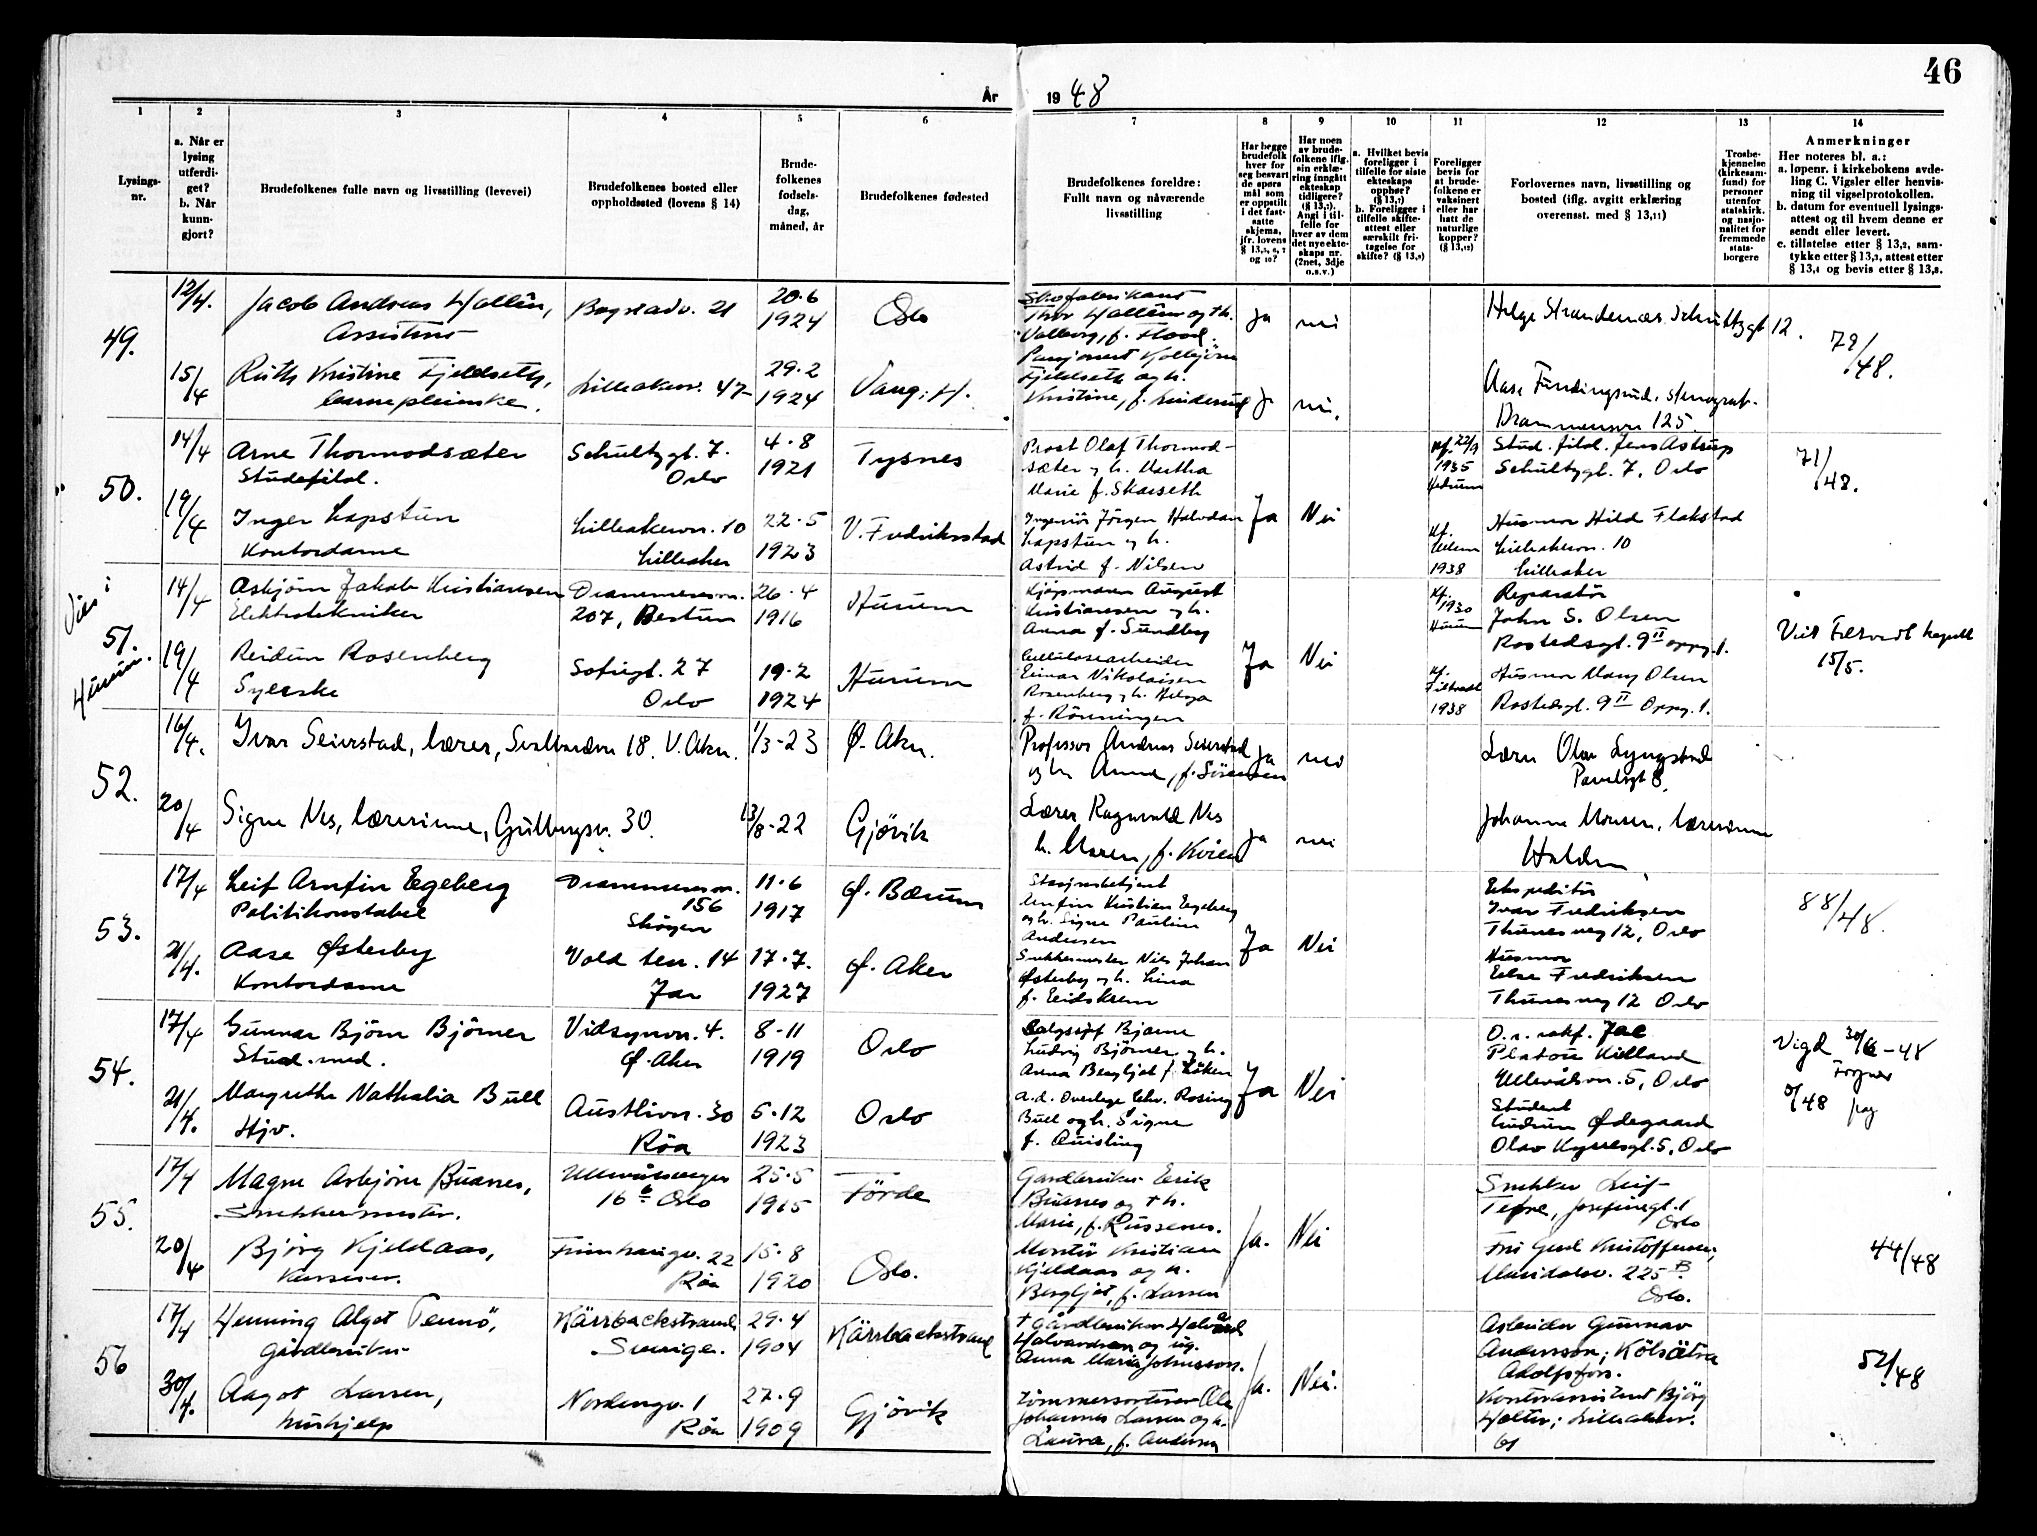 46
År 1948
1
2
3
4
5
6
7
8
9
10
11
12
13
14
Lysings-
nr.
a. Når er
lysing
utferdi-
get?
b. Når
kunn-
gjort?
Brudefolkenes fulle navn og livsstilling (levevei)
Brudefolkenes bosted eller
oppholdssted (lovens § 14)
Brude-
folkenes
fødsels-
dag,
måned, år
Brudefolkenes fødested
Brudefolkenes foreldre:
Fullt navn og nåværende
livsstilling
Har begge
brudefolk
hver for
seg besvart
de spørs
mål som
er oppstilt
i det fast-
satte
skjema,
jfr. lovens
og 10?
Har noen
av brude-
folkene iflg.
sin erklæ-
ring inngått
ekteskap
tidligere?
Angi i til-
felle for
hver av dem
det nye ekte-
skaps nr.
(2net, 3dje
o.s.v.)
a. Hvilket bevis
foreligger i
tilfelle for siste
ekteskaps
opphør?
b. Foreligger i
tilfelle skifte-
attest eller
særskilt fri-
tagelse for
Foreligger
bevis for
at brude-
folkene er
vaksinert
eller har
hatt de
naturlige
kopper?
Forlovernes navn, livsstilling og
bosted (iflg. avgitt erklæring
overensst. med § 13,11)
Trosbe-
kjennelse
(kirkesam-
fund) for
personer
utenfor
statskirk.
og nasjo-
nalitet for
fremmede
stats-
borgere
Anmerkninger
Her noteres bl. a.:
a. løpenr. i kirkebokens avde-
ling C. Vigsler eller henvis-
ning til vigselprotokollen.
b. datum for eventuell lysings-
attest og til hvem denne er
sendt eller levert.
c. tillatelse etter § 13,2, sam-
tykke etter § 13,3, attest etter
§ 13,4 og bevis etter § 13,8.
49.
12/4.
Jacob Andreas Hallén,
Assistent
Bogstadv. 21
20.6
1924
Oslo
Skofabrikant
Thor Hallén og th.
Valborg, f. Flood.
Ja
nei
Helge Strandenæs Schultzgt 12.
79/48.
15/4
Ruth Kristine Fjeldseth,
barnepleierske.
Lilleakerv. 47
29.2
1924
Vang. H.
Pensjonert Kolbjørn
Fjeldseth og h.
Kristine, f. Linderud
J
nei.
Aase Fundingsrud, stenograf.
Drammensvn 125.
50.
14/4
Arne Thormodsæter
Stud. filol.
Schultzgt. 7.
Oslo
4.8
1921
Tysnes
Prost Olaf Thormod-
sæter og h. Martha
Marie f. Skasseth
kf. 22/9
1935
Hedrum
Stud. filol. Jens Astrup
Schultzgt. 7, Oslo
71/48.
19/4
Inger Lapstun
Kontordame
Lilleakervn. 10
Lilleaker
22.5
1923
V. Fredrikstad
Ingeniør Jørgen Halvdan
Lapstun og h.
Astrid f. Nilsen
Ja
Nei
kf.
1938
Husmor Hild Flakstad
Lilleakervn. 10
Lilleaker
Vies i
51.
Hurum.
14/4
Asbjørn Jakob Kristiansen
Elektrotekniker
Drammensvn.
207, Bestun
26.4
1916
Hurum
Kjøpmann August
Kristiansen og h.
Anna f. Sundberg
kf.
1930
Hurum
Reparatør
John S. Olsen
Rostedsgt. 9 II oppg. 1.
Viet Filtvedt kapell
15/5.
19/4
Reidun Rosenberg
Syerske
Sofiegt. 27
Oslo
19.2
1924
Hurum
Cellulosearbeider
Einar Nikolaisen
Rosenberg og h. Helga
f. Rönningen
Ja
Nei
kf.
Filtvedt
1938
Husmor Mary Olsen
Rostedsgt. 9 II Oppg. 1.
52.
16/4.
Ivar Seierstad, lærer, Svalbardvn 18. V. Aker.
1/3-23
Ø. Aker.
Professor Andreas Seierstad
og h. Anna, f. Sörensen
Ja
nei
Lærer Olav Lyngstad
Pavelsgt 8.
20/4
Signe Nes, lærerinne, Gullbergsv. 30.
13/8-22
Gjøvik
Lærer Ragnvald Nes
h. Maren, f. Kvien
Ja
nei
Johanna Monsen, lærerinne
Halden
53.
17/4
Leif Arnfin Egeberg
Politikonstabel
Drammensvn.
156
Skøyen
11.6
1917
Ø. Bærum
Stasjonsbetjent
Arnfin Kristian Egeberg
og h. Signe Pauline
Andersen
Ekspeditør
Ivar Fredriksen
Thunesveg 12, Oslo
88/48.
21/4.
Aase Østerby
Kontordame
Vold ter. 14
Jar
17.7.
1927
Ø. Aker
Snekkermester Nils Johan
Østerby og h. Lina
f. Eidsksem
Ja
Nei
Husmor
Else Fredriksen
Thunesveg 12 Oslo
54.
17/4
Gunnar Björn Björner
Stud. med.
Vidsynvn. 4.
Ø. Aker
8-11
1919
Oslo
Salgssjef Bjarne
Ludvig Björner og h.
Anna Bergljot f. Löken
O.r. sakf. Jac
Platou Kielland
Ullevålsvn. 5, Oslo
Vigd 30/6-48
Frogner
21/4.
Margrethe Nathalia Bull
Hjv.
Austlivn. 30
Røa
5.12
1923
Oslo
a.d. Overlege Edv. Rosing
Bull og h. Signe
f. Quisling
Ja
Nei
Student
Gudrun Ødegaard
Olav Kyrresgt. 5, Oslo
0/48 pag
55.
17/4
Magne Asbjörn Buanes,
Snekkermester.
Ullevålsveien
16 b Oslo
25.5
1915
Förde
Gardbruker Erik
Buanes og th.
Marie, f. Russenes.
Snekker Leif
Tefre, Josefinegt. 1
Oslo
20/4
Bjørg Kjeldaas,
kasserer.
22
Røa
15.8
1920
Oslo.
Montör Kristian
Kjeldaas og h.
Bergljot, f. Larsen
Ja.
Nei
Fru Gerd Kristoffersen,
Maridalsv. 225 B.
Oslo.
44/48
56
17/4
Henning Algot Tennö,
gårdbruker
Kärrbackstrand,
Sverige.
29.4
1904
Kärrbackstrand
† Gårdbruker Halvard
Halvardson og ug.
Anna Maria Johnsson.
Arbeider Gunnar
Andersson; Kölsätra
Adolfsfors.
52/48
30/4.
Aagot Larsen,
hushjelp
Nordengv. 1
Røa
27.9
1909
Gjøvik
Tømmersorterer Ole
Johannes Larsen og h.
Laura, f. Andersen
Ja.
Nei.
Kontorassistent Bjørg
Holter; Lilleakerv.
61